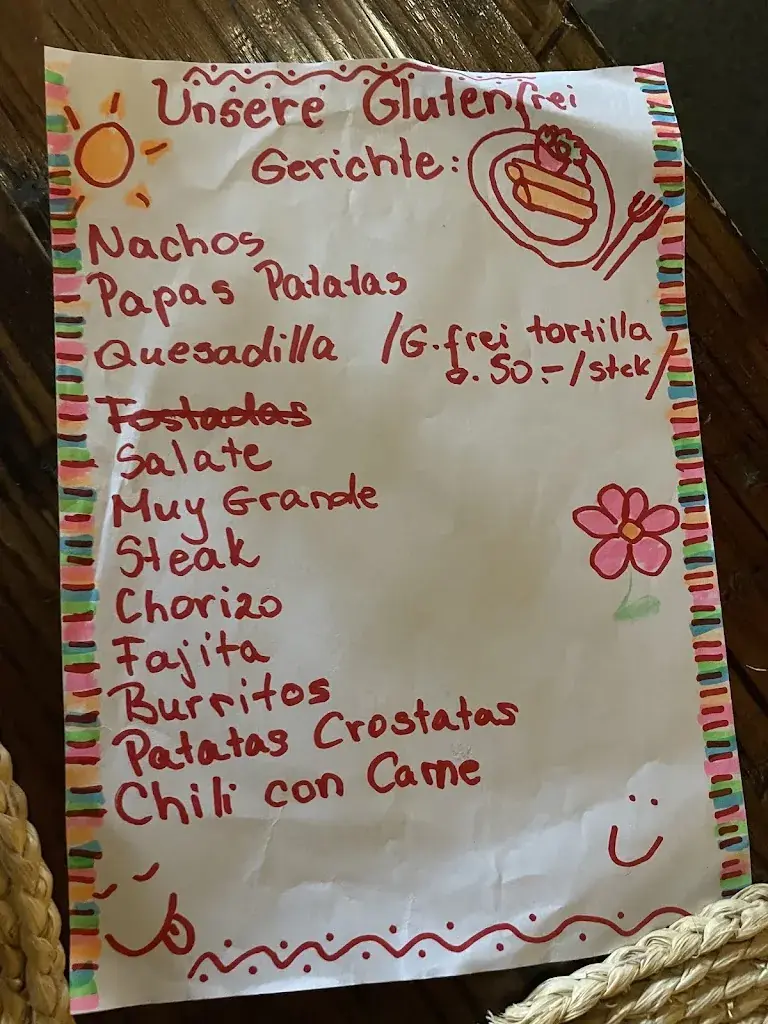 Unsere Glutenfrei
Gerichte:
Nachos
Papas Patatas
Quesadilla /G.frei tortilla
0.50.-/stck/
Tostadas
Salate
Muy Grande
Steak
Chorizo
Fajita
Burritos
Patatas Crostatas
Chili con Carne